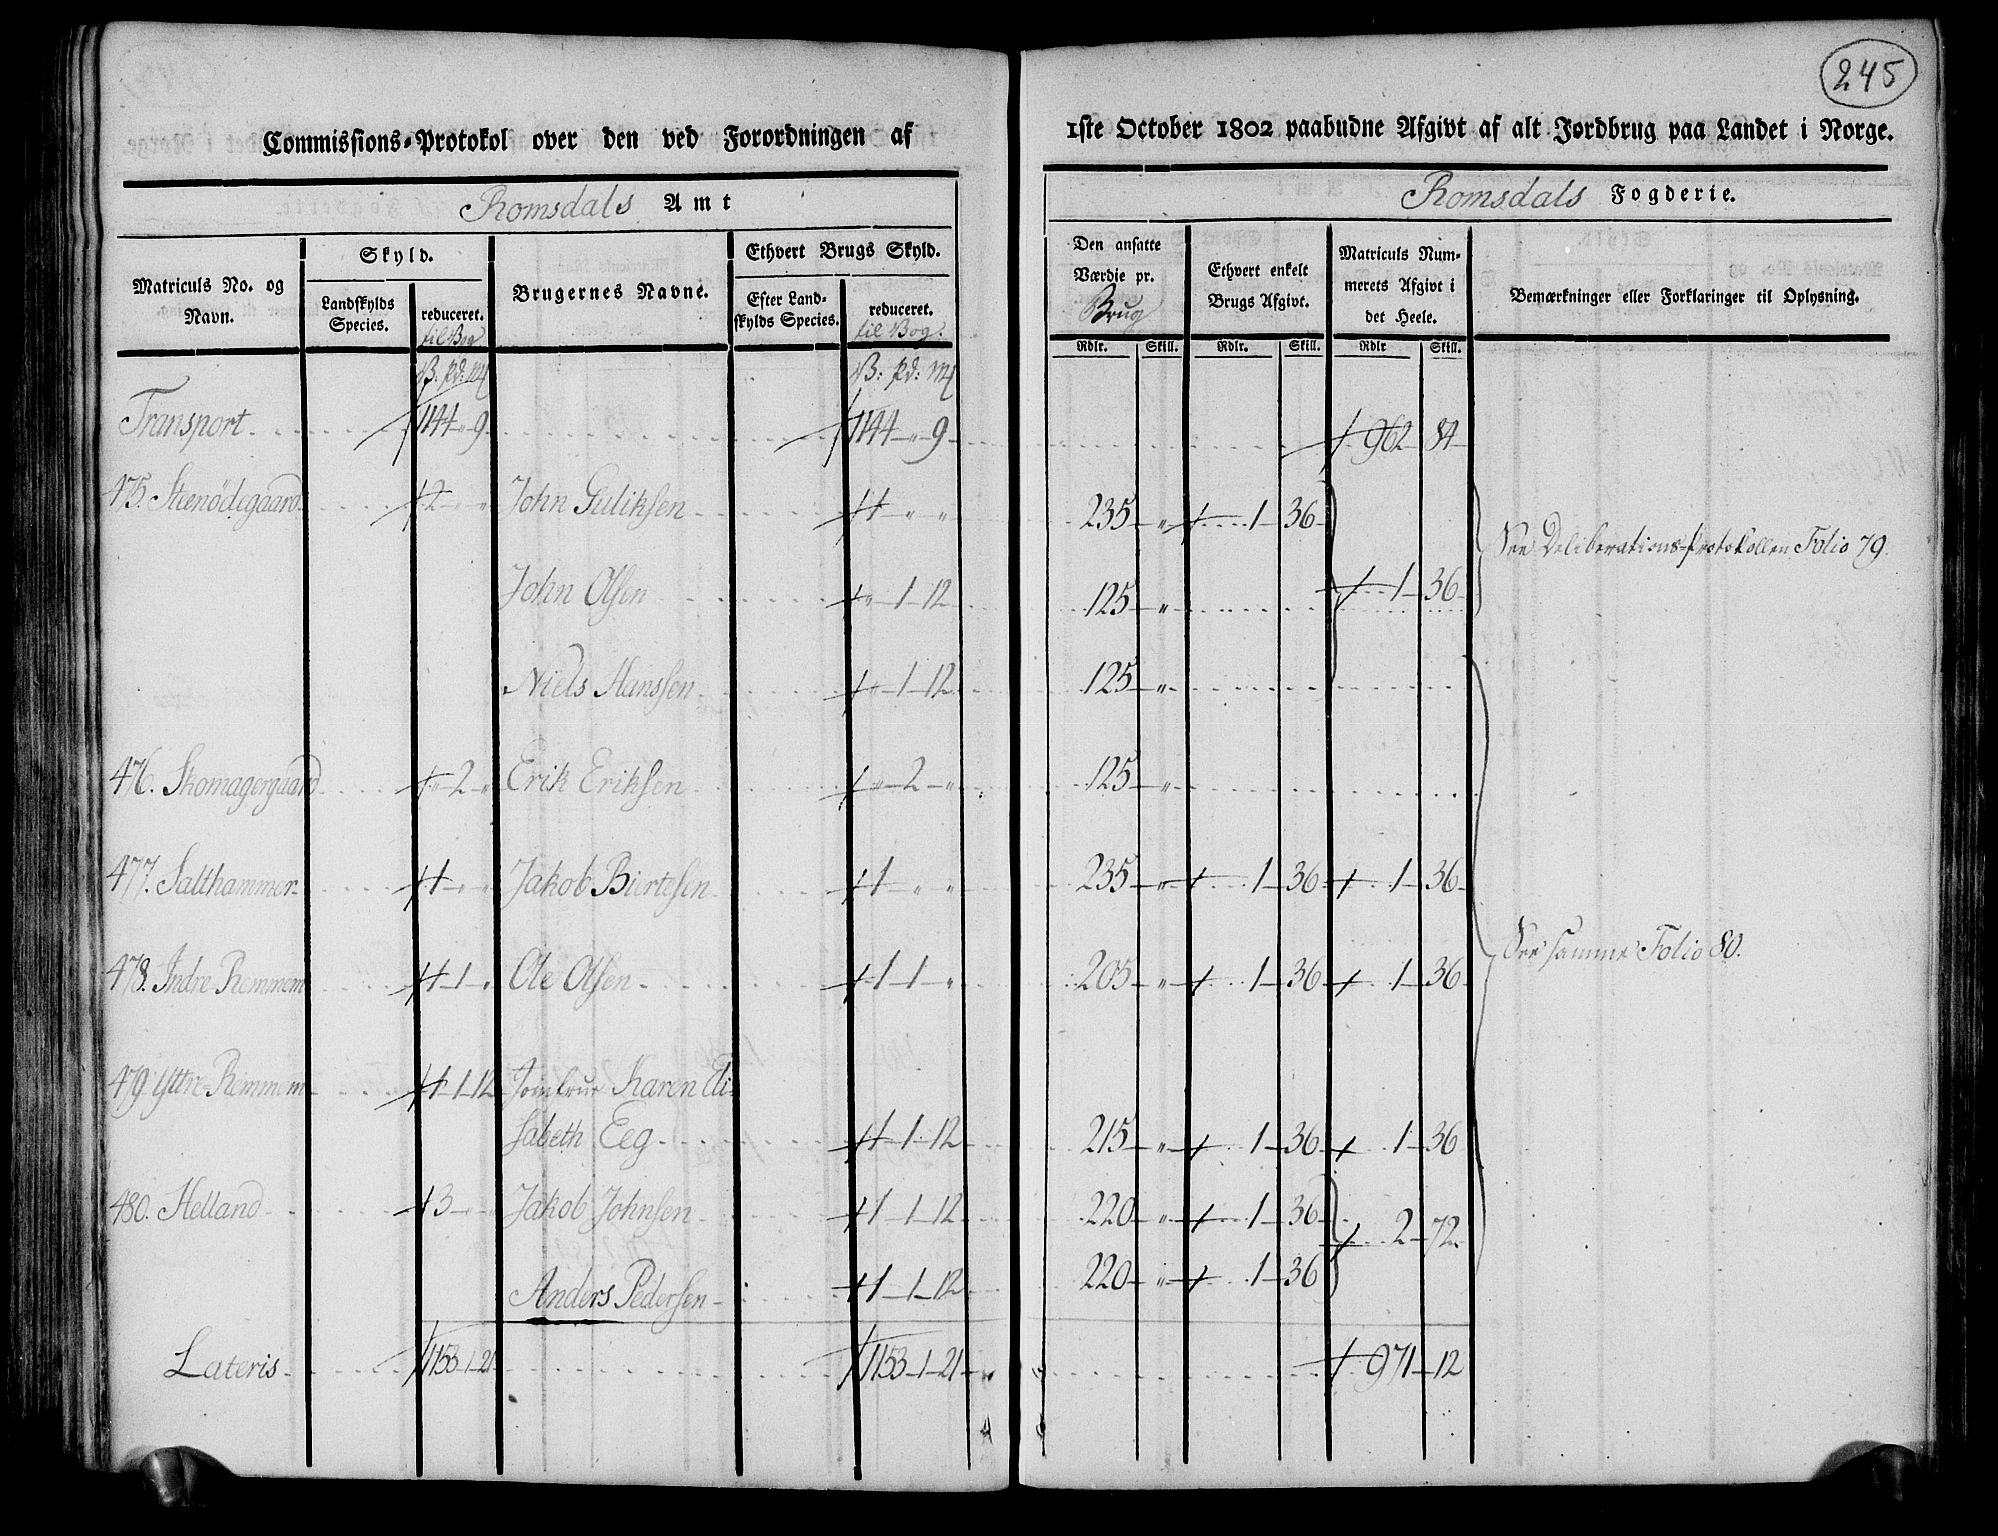 245
Commissions-Protokol over den ved Forordningen af 1ste October 1802 paabudne Afgivt af alt Jordbrug paa Landet i Norge.
Romsdals Amt Romsdals Fogderie.
Matriculs No. og Navn.
Skyld.
Landskylds Species.
reduceret. til Bog
Brugernes Navne.
Ethvert Brugs Skyld.
Efter Landskylds Species.
reduceret. til Bog.
Den ansatte Værdie pr. Brug
Ethvert enkelt Brugs Afgivt.
Matriculs Nummerets Afgivt i det Heele.
Bemærkninger eller Forklaringer til Oplysning.
Rdlr. Skill. Rdlr. Skill. Rdlr Skill.
B. pd: M B: pd: M
Transport 1144 " 9 1144 " 9 962 84
475. Steenödegaard 2 " " John Guliksen 1 " " 235 " 1 36
See Deliberations-Protokollen Folio 79.
John Olsen " 1 12 125 " 1 36
Niels Hanssen " 1 12 125 "
476. Skomagergaard " 2 " Erik Eriksen " 2 " 125 "
477. Salthammer 1 " " Jakob Biertesen 1 " " 235 " 1 36 1 36
See samme Folio 80.
478. Indre Remmem 1 1 " Ole Olsen 1 1 " 205 " 1 36 1 36
479 Yttre-Remmem 1 1 12 Jomfrue Karen Eli-
sabeth Eeg 1 1 12 215 " 1 36 1 36
480. Helland 3 " " Jakob Johnsen 1 1 12 220 " 1 36
2 72
Anders Pedersen 1 1 12 220 " 1 36
Lateris 1153 1 21 1153 1 21 971 12